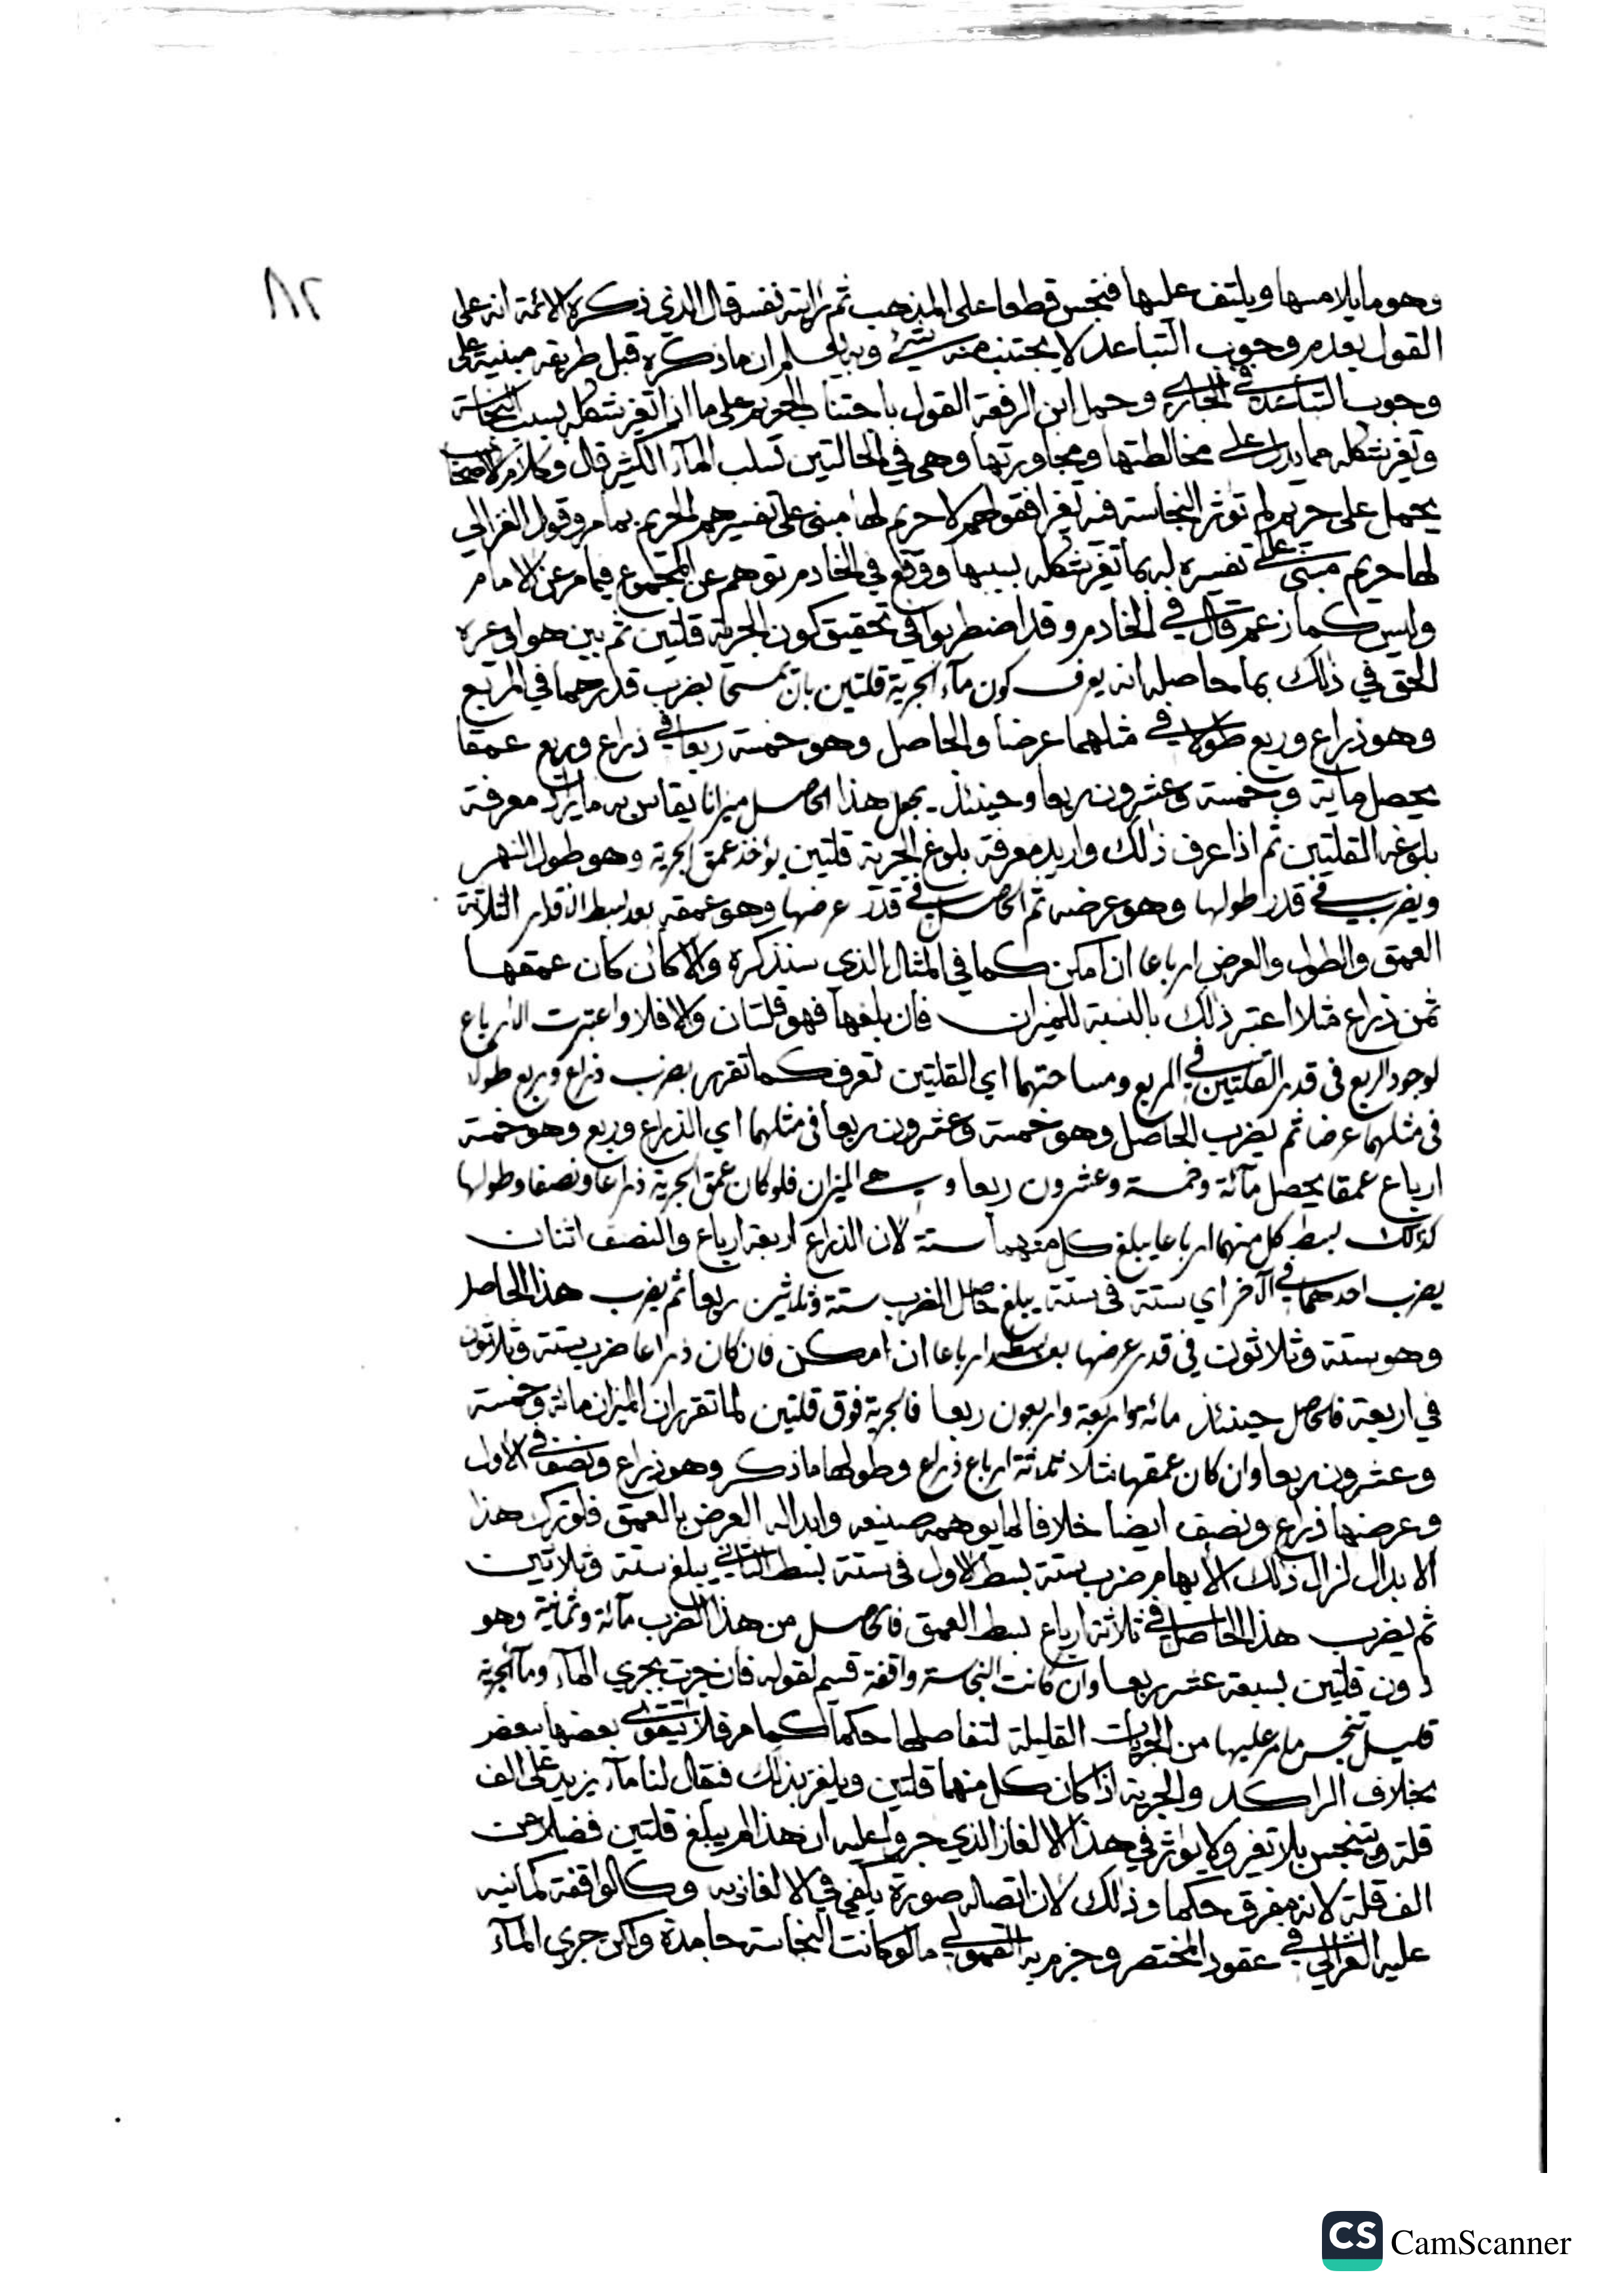 ٨٢
وهو ما يلامسها ويلتف عليها فنجس قطعا على المذهب ثم رايته نفسه قال الذي ذكره الائمة انه على
القول بعدم وجوب التباعد لا يجتنب منه شيء وبه يعلم ان ما ذكره قبل طريقه مبنية على
وجوب التباعد في الجاري وحمل ابن الرفعة القول باجتناب الحريم على ما اذا تغير شكله بسبب النجاسة
وتغير شكله مما يدل على مخالطتها ومجاورتها وهي في الحالتين تسلب الماء الكثير قال وكلام الاصحاب
يحمل على حريم لم تؤثر النجاسة فيه تغيرا فقولهم لا حريم لها مبني على تفسيرهم الحريم بما مر وقول الغزالي
لها حريم مبني على تفسيره له بما تغير شكله بسببها ووقع في الخادم توهم عن المجموع فيما مر عن الامام
وليس كما زعم قال في الخادم وقد اضطربوا في تحقيق كون الجرية قلتين ثم بين هو او غيره
الحق في ذلك بما حاصله انه يعرف كون ماء الجرية قلتين بان تمسحا بضرب قدرهما في المربع
وهو ذراع وربع طولا في مثلهما عرضا والحاصل وهو خمسة ربعا في ذراع وربع عمقا
يحصل ماية وخمسة وعشرون ربعا وحينئذ يجعل هذا الحاصل ميزانا يقاس به ما يراد معرفة
بلوغه القلتين ثم اذا عرف ذلك واريد معرفة بلوغ الجرية قلتين يؤخذ عمق الجرية وهو طول النهر
ويضرب في قدر طولها وهو عرضه ثم الحاصل في قدر عرضها وهو عمقه بعد بسط الاقدار الثلاثة
العمق والطول والعرض ارباعا ان امكن كما في المثال الذي سنذكره والا كان كان عمقها
ثمن ذراع مثلا اعتبر ذلك بالنسبة للميزان فان بلغها فهو قلتان والا فلا واعتبرت الارباع
لوجود الربع في قدر القلتين في المربع ومساحتهما اي القلتين تعرف كما تقرر بضرب ذراع وربع طولا
في مثلهما عرضا ثم يضرب الحاصل وهو خمسة وعشرون ربعا في مثلهما اي الذراع وربع وهو خمسة
ارباع عمقا يحصل مائة وخمسة وعشرون ربعا وهي الميزان فلو كان عمق الجرية ذراعا ونصفا وطولها
كذلك بسط كل منهما ارباعا يبلغ كل منهما ستة لان الذراع اربعة ارباع والنصف اثنان
يضرب احدهما في الآخر اي ستة في ستة يبلغ حاصل الضرب ستة وثلثين ربعا ثم يضرب هذا الحاصل
وهو ستة وثلاثون في قدر عرضها بعد بسطه ارباعا ان امكن فان كان ذراعا ضرب ستة وثلاثون
في اربعة فالحاصل حينئذ مائة واربعة واربعون ربعا فالجرية فوق قلتين لما تقرر ان الميزان مائة وخمسة
وعشرون ربعا وان كان عمقها مثلا ثلاثة ارباع ذراع وطولها ما ذكر وهو ذراع ونصف في الاول
وعرضها ذراع ونصف ايضا خلافا لما يوهمه صنيعه وابداله العرض بالعمق فلو ترك هذا
الابدال لزال ذلك الايهام ضرب ستة بسط الاول في ستة بسط الثاني يبلغ ستة وثلاثين
ثم يضرب هذا الحاصل في ثلاثة ارباع بسط العمق فالحاصل من هذا الضرب مائة وثمانية وهو
دون قلتين بسبعة عشر ربعا وان كانت النجاسة واقفة قسيم لقوله فان جرت بجري الماء وماء الجرية
قليل تنجس ما مر عليها من الجريات القليلة لتفاصلها حكما كما مر فلا يتقوى بعضها ببعض
بخلاف الراكد والجرية اذا كان كل منهما قلتين ويلغز بذلك فيقال لنا ماء يزيد على الف
قلة وتنجس بلا تغير ولا يؤثر في هذا الالغاز الذي جروا عليه ان هذا لم يبلغ قلتين فضلا عن
الف قلة لانه مفرق حكما وذلك لان اتصاله صورة يكفي في الالغاز به وكالواقفة كما نبه
عليه الغزالي في عقود المختصر وجزم به القمولي ما لو كانت النجاسة جامدة ولكن جري الماء
CS CamScanner